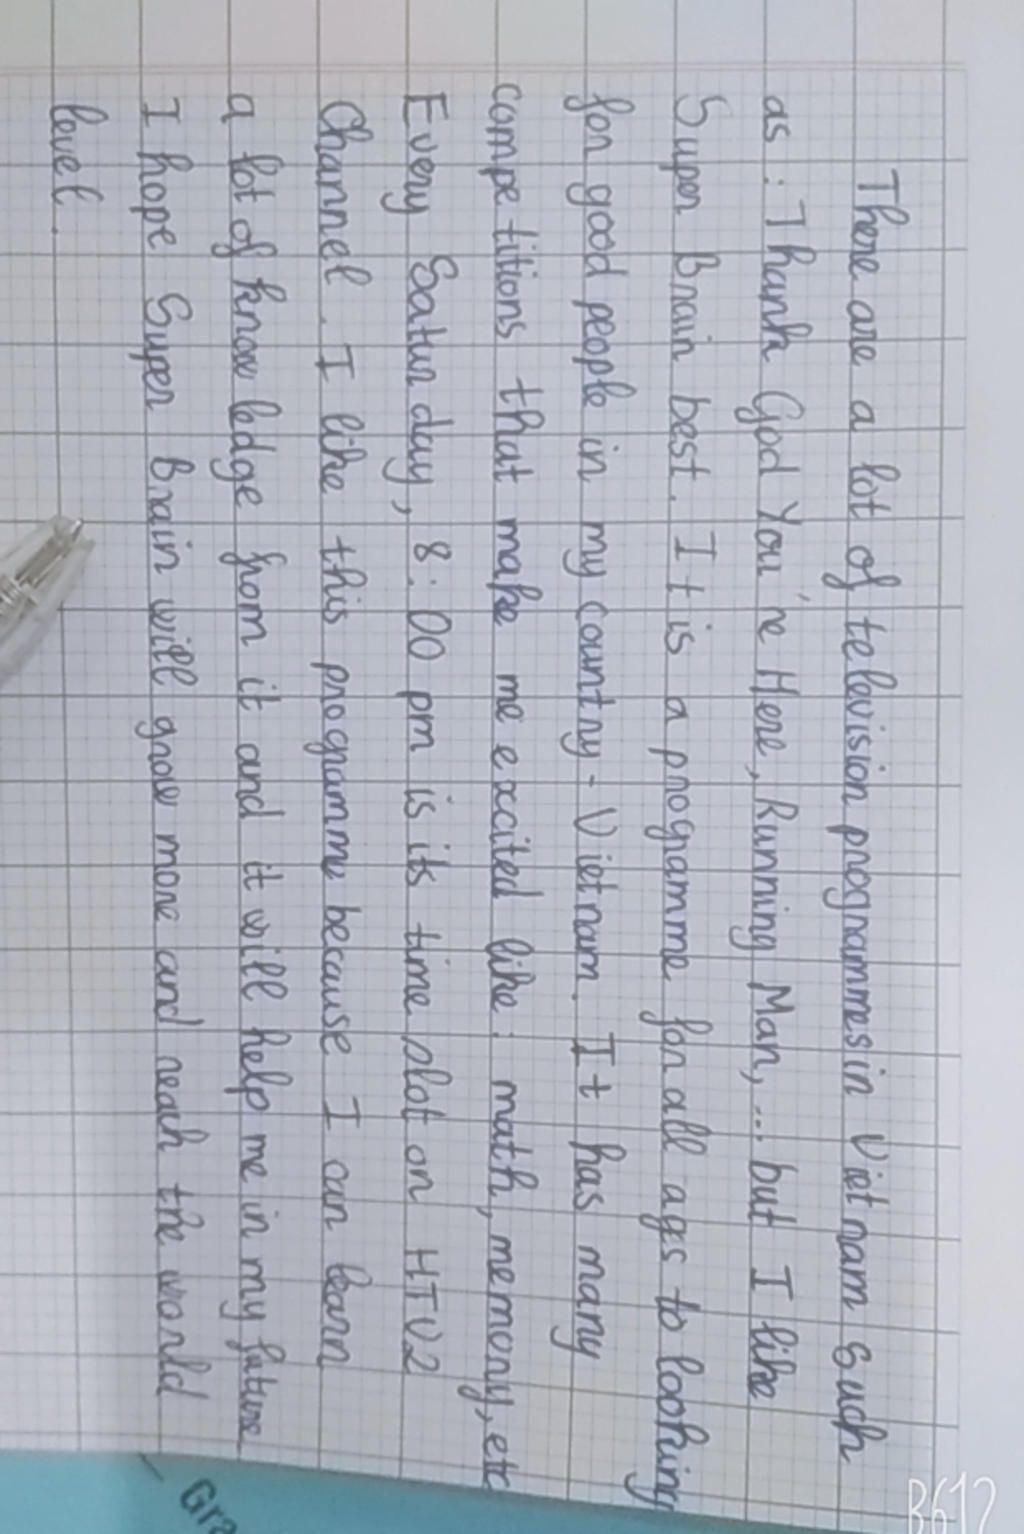 There are a lot of television programmes in Viet nam such
as : Thank God You're Here, Running Man,... but I like
Super Brain best. It is a programme for all ages to looking
for good people in my country - Vietnam. It has many
competitions that make me excited like : math, memory, etc
Every Saturday, 8:00 pm is its time plot on HTV2
Channel. I like this programme because I can learn
a lot of knowledge from it and it will help me in my future
I hope Super Brain will gow more and reah the world
level.
Gra
B612